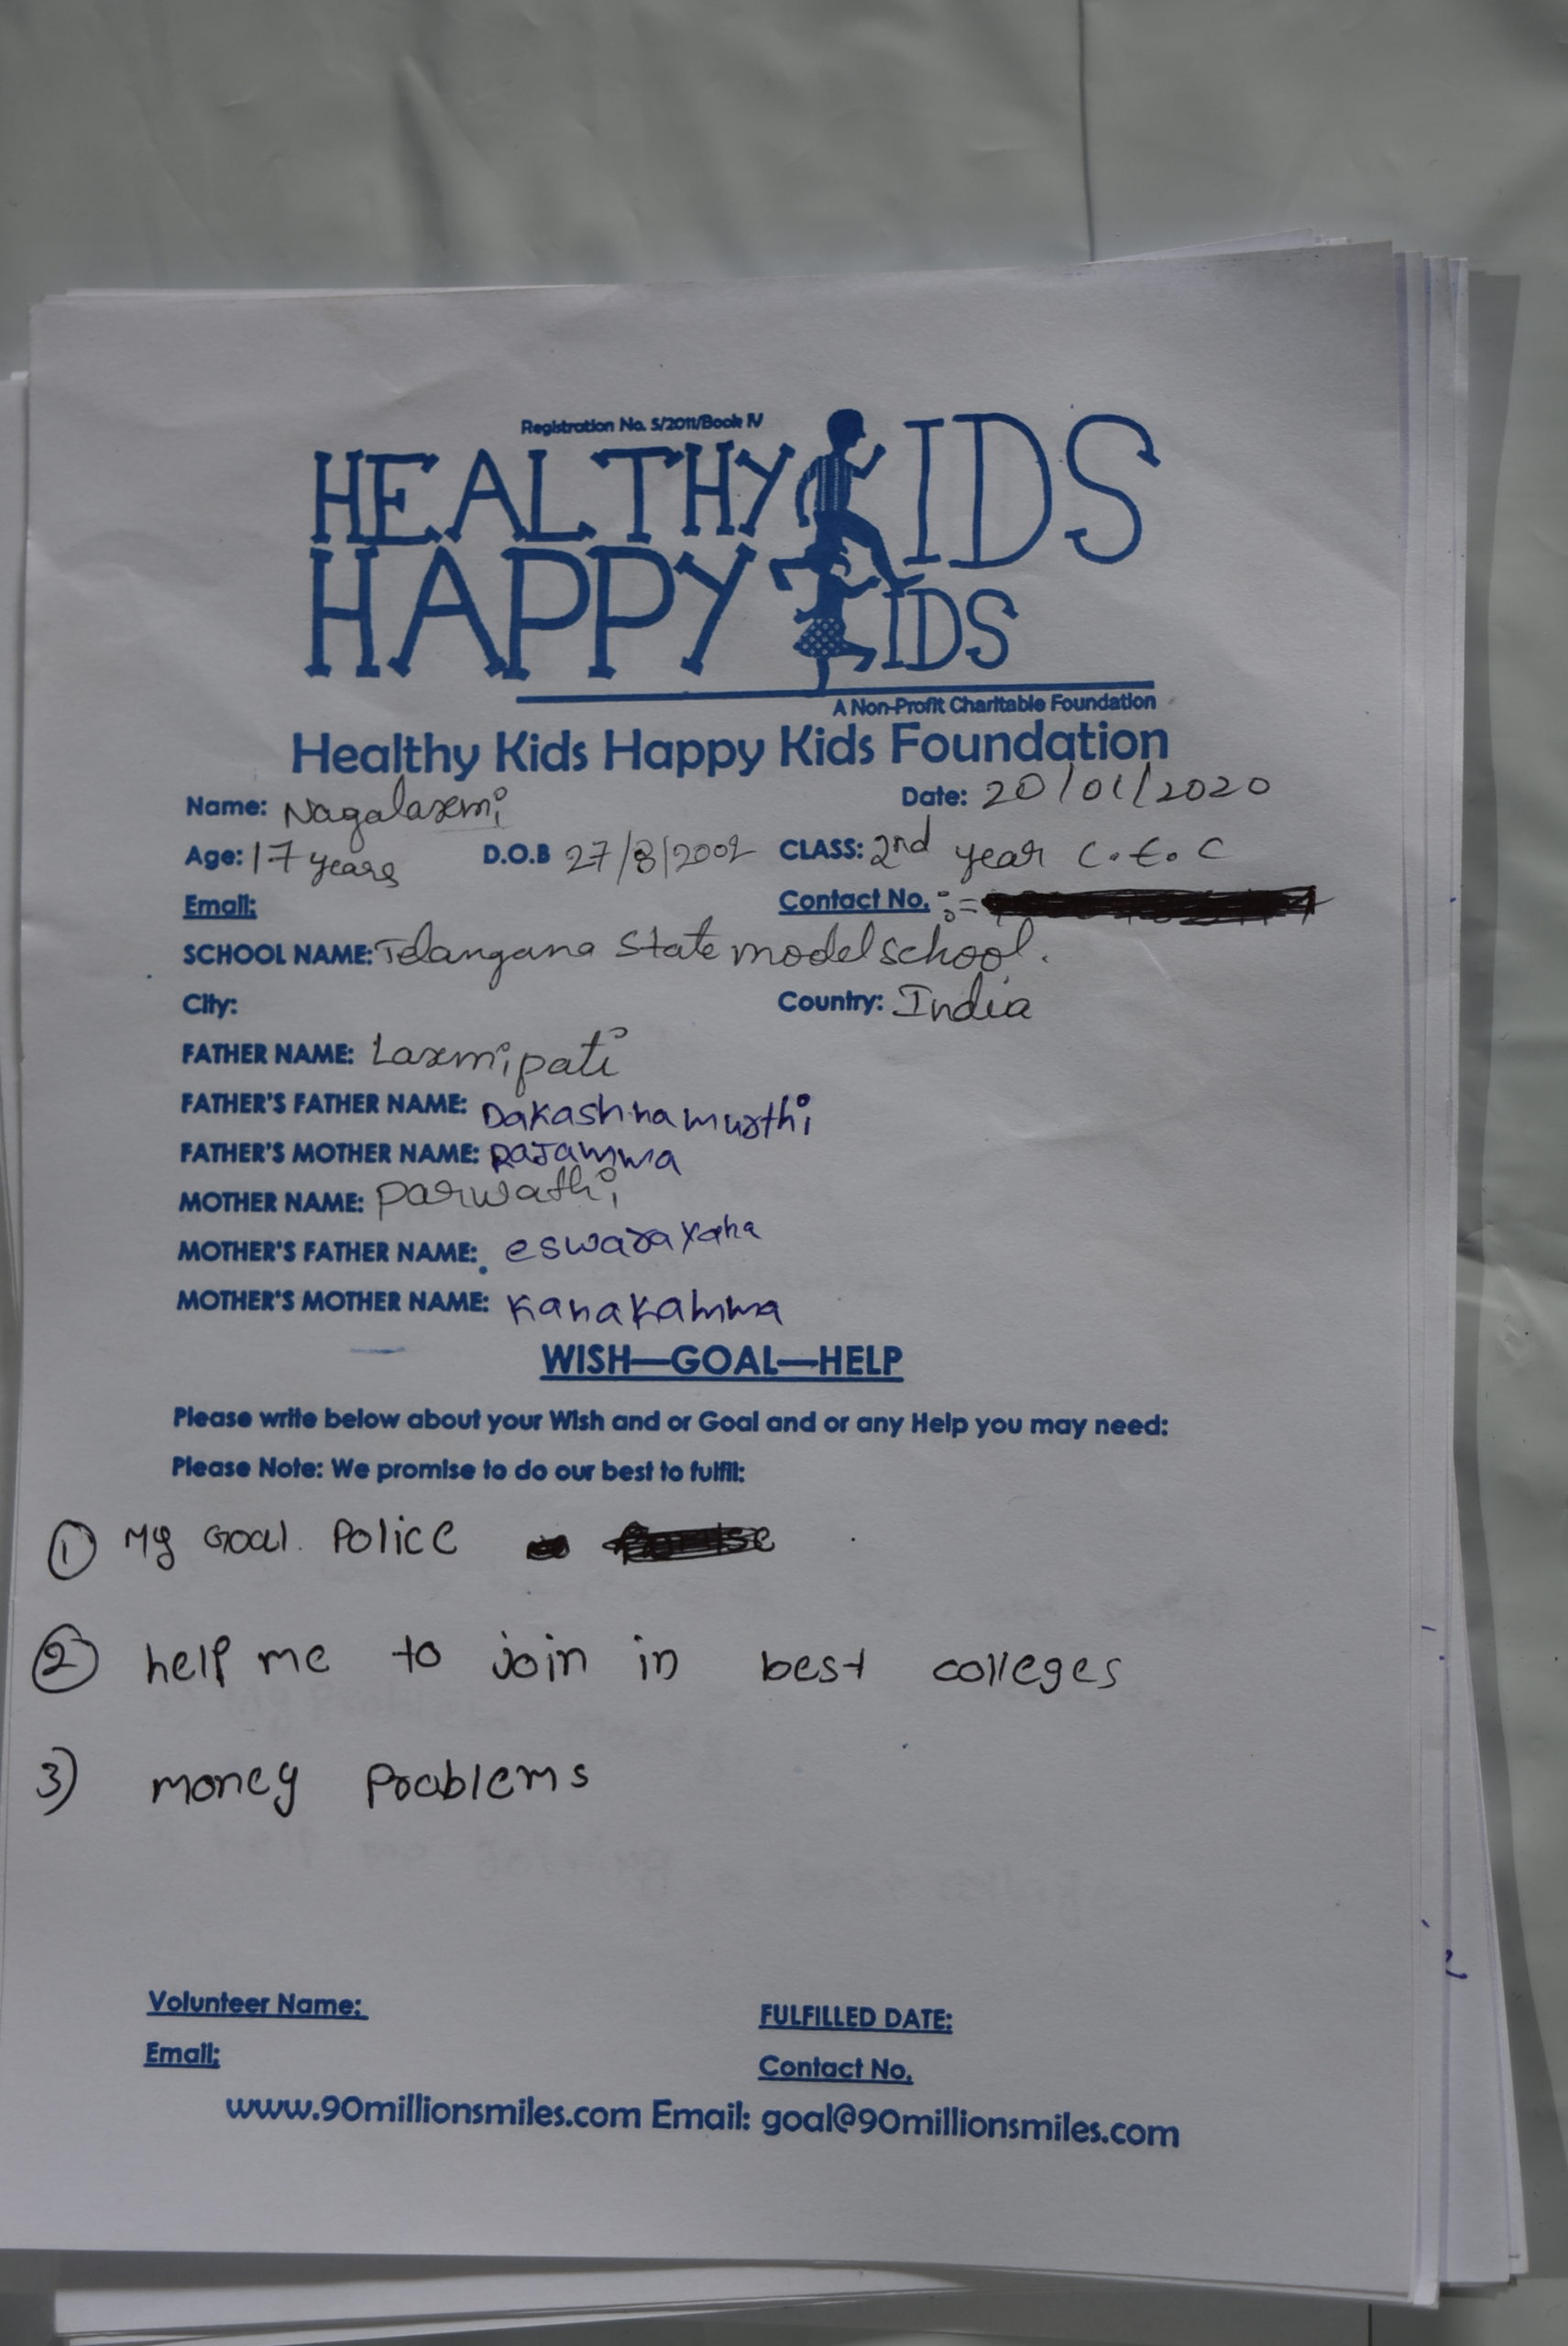 Registration No. 5/2011/Book IV
HEALTHY KIDS
HAPPY KIDS
A Non-Profit Charitable Foundation
Healthy Kids Happy Kids Foundation
Name: Nagalaxmi Date: 20/01/2020
Age: 17 years D.O.B 27/8/2002 CLASS: 2nd year C.E.C
Email: Contact No. :=
SCHOOL NAME: Telangana State model school.
City: Country: India
FATHER NAME: Laxmipati
FATHER'S FATHER NAME: Dakashnamurthi
FATHER'S MOTHER NAME: RaJamma
MOTHER NAME: parwathi
MOTHER'S FATHER NAME:
MOTHER'S MOTHER NAME: Kanakamma
WISH—GOAL—HELP
Please write below about your Wish and or Goal and or any Help you may need:
Please Note: We promise to do our best to fulfil:
① My Goal. Police
② help me to join in best colleges
3) money Problems
Volunteer Name: FULFILLED DATE:
Email: Contact No.
www.90millionsmiles.com Email: goal@90millionsmiles.com